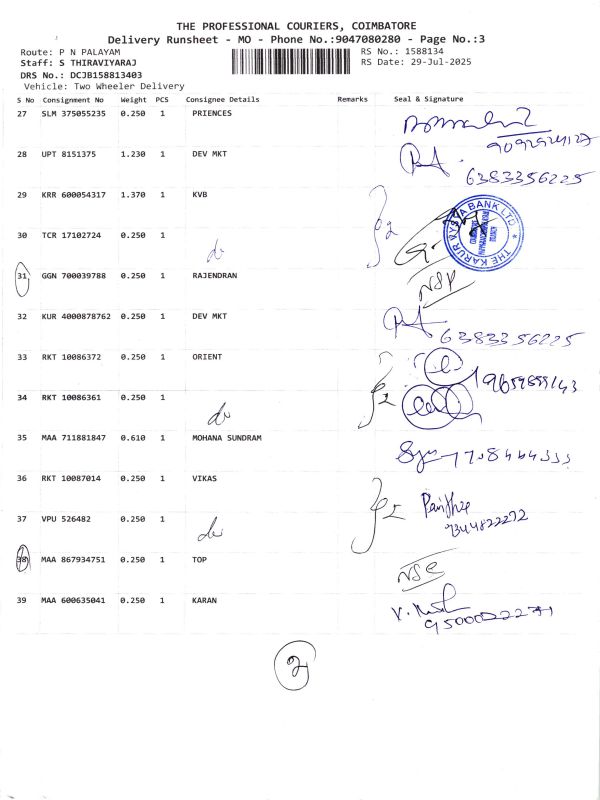 THE PROFESSIONAL COURIERS, COIMBATORE
Delivery Runsheet - MO - Phone No.:9047080280 - Page No.:3
Route: P N PALAYAM RS No.: 1588134
Staff: S THIRAVIYARAJ RS Date: 29-Jul-2025
DRS No.: DCJB158813403
Vehicle: Two Wheeler Delivery
S No Consignment No Weight PCS Consignee Details Remarks Seal & Signature
27 SLM 375055235 0.250 1 PRIENCES
28 UPT 8151375 1.230 1 DEV MKT
6383356225
29 KRR 600054317 1.370 1 KVB
THE KARUR VYSYA BANK LTD
30 TCR 17102724 0.250 1 do
31 GGN 700039788 0.250 1 RAJENDRAN
32 KUR 4000878762 0.250 1 DEV MKT
6383356225
33 RKT 10086372 0.250 1 ORIENT
34 RKT 10086361 0.250 1 do
35 MAA 711881847 0.610 1 MOHANA SUNDRAM
36 RKT 10087014 0.250 1 VIKAS
37 VPU 526482 0.250 1 do
38 MAA 867934751 0.250 1 TOP
39 MAA 600635041 0.250 1 KARAN
2